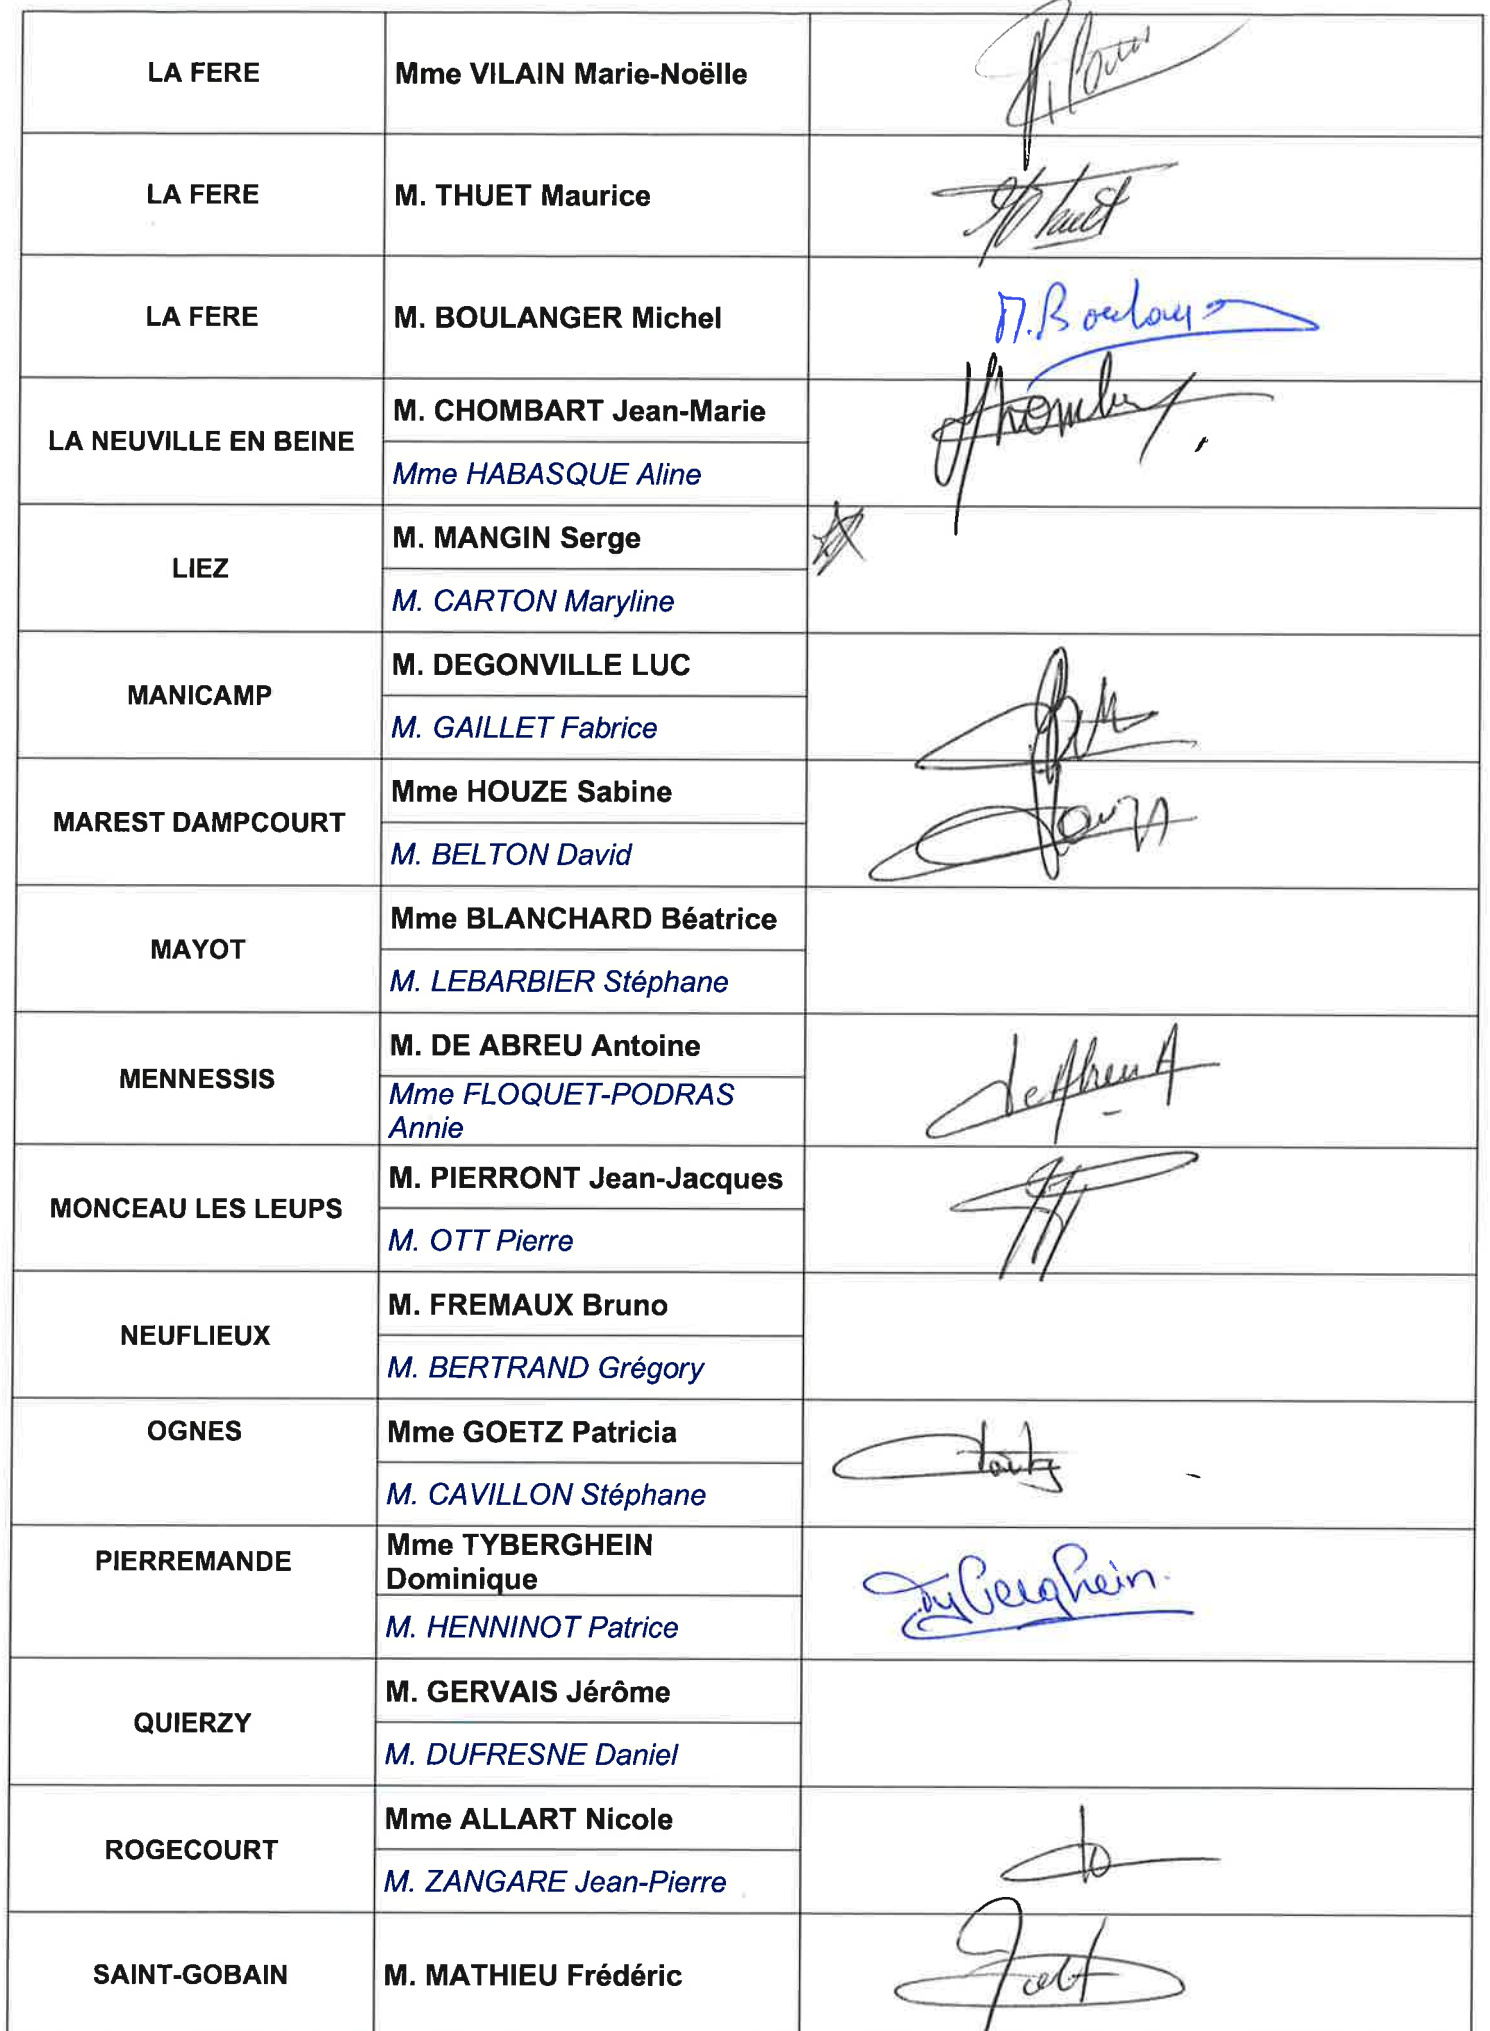 LA FERE
Mme VILAIN Marie-Noëlle
LA FERE
M. THUET Maurice
Thuet
LA FERE
M. BOULANGER Michel
M. Boulanger
LA NEUVILLE EN BEINE
M. CHOMBART Jean-Marie
Mme HABASQUE Aline
LIEZ
M. MANGIN Serge
M. CARTON Maryline
MANICAMP
M. DEGONVILLE LUC
M. GAILLET Fabrice
MAREST DAMPCOURT
Mme HOUZE Sabine
M. BELTON David
MAYOT
Mme BLANCHARD Béatrice
M. LEBARBIER Stéphane
MENNESSIS
M. DE ABREU Antoine
Mme FLOQUET-PODRAS
Annie
De Abreu A
MONCEAU LES LEUPS
M. PIERRONT Jean-Jacques
M. OTT Pierre
NEUFLIEUX
M. FREMAUX Bruno
M. BERTRAND Grégory
OGNES
Mme GOETZ Patricia
M. CAVILLON Stéphane
PIERREMANDE
Mme TYBERGHEIN
Dominique
M. HENNINOT Patrice
Tyberghein
QUIERZY
M. GERVAIS Jérôme
M. DUFRESNE Daniel
ROGECOURT
Mme ALLART Nicole
M. ZANGARE Jean-Pierre
SAINT-GOBAIN
M. MATHIEU Frédéric